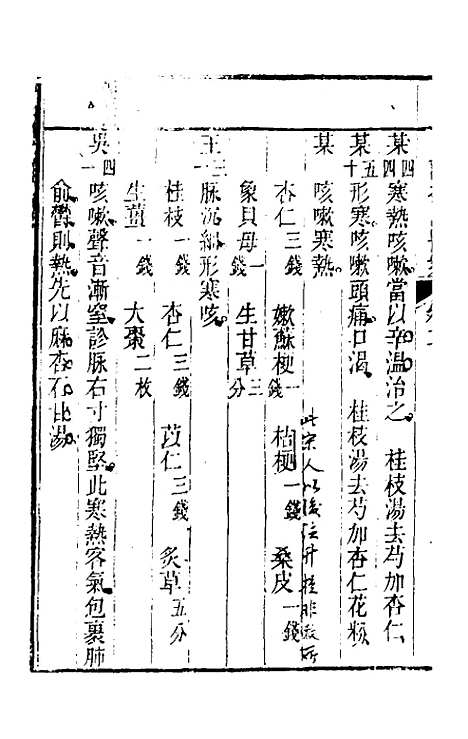 某四四　寒熱咳嗽。當以辛温治之。　桂枝湯去芍加杏仁
某五十　形寒。咳嗽頭痛。口渴。　桂枝湯去芍加杏仁花粉
某　咳嗽寒熱。
杏仁三錢　嫩蘇梗一錢　桔梗一錢　桑皮一錢
象貝母一錢　生甘草三分
王三一　脉沉細。形寒咳。
桂枝一錢　杏仁三錢　苡仁三錢　炙草五分
生薑一錢　大棗二枚
吳四一　咳嗽。聲音漸窒。診脉右寸獨堅。此寒熱客氣包裹肺
俞。鬱則熱。先以麻杏石甘湯。